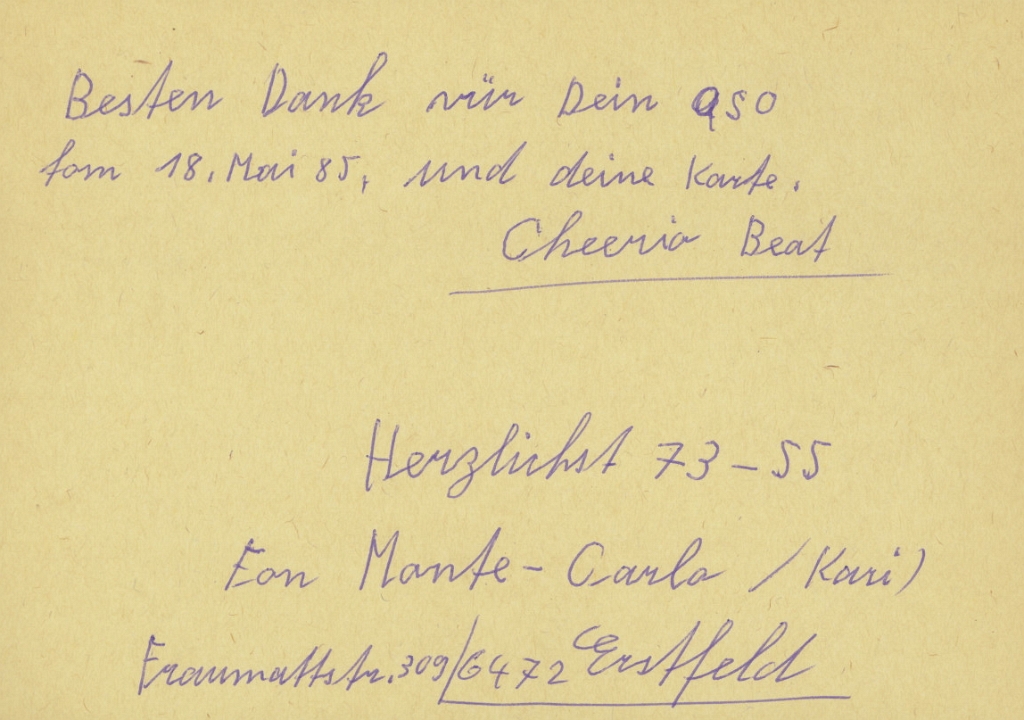 Besten Dank vür Dein QSO
fom 18. Mai 85, und deine Karte.
Cheerio Beat
Herzlichst 73-55
Fon Monte-Carlo /Kari)
Fraumattstr. 309/6472 Erstfeld